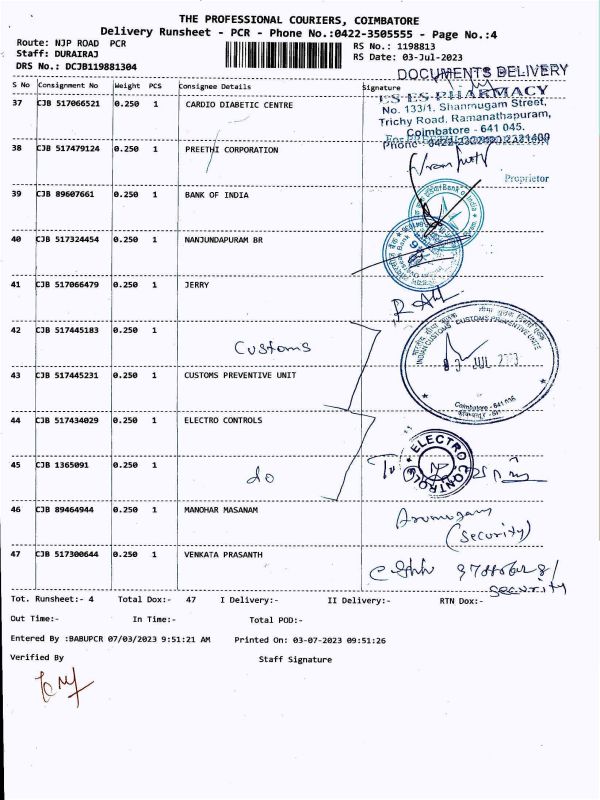 THE PROFESSIONAL COURIERS, COIMBATORE
Delivery Runsheet - PCR - Phone No.:0422-3505555 - Page No.:4
Route: NJP ROAD PCR
RS No.: 1198813
Staff: DURAIRAJ
RS Date: 03-Jul-2023
DRS No.: DCJB119881304
DOCUMENTS DELIVERY
S No Consignment No Weight PCS Consignee Details Signature
ES ES PHARMACY
37 CJB 517066521 0.250 1 CARDIO DIABETIC CENTRE
No. 133/1, Shanmugam Street,
Trichy Road, Ramanathapuram,
Coimbatore - 641 045.
38 CJB 517479124 0.250 1 PREETHI CORPORATION
Proprietor
39 CJB 89607661 0.250 1 BANK OF INDIA
Bank of India
40 CJB 517324454 0.250 1 NANJUNDAPURAM BR
41 CJB 517066479 0.250 1 JERRY
42 CJB 517445183 0.250 1
Customs
INDIAN CUSTOMS CUSTOMS PREVENTIVE UNIT
JUL
43 CJB 517445231 0.250 1 CUSTOMS PREVENTIVE UNIT
44 CJB 517434029 0.250 1 ELECTRO CONTROLS
ELECTRO CONTROLS
45 CJB 1365091 0.250 1
do
46 CJB 89464944 0.250 1 MANOHAR MASANAM
Arumugam
(Security)
47 CJB 517300644 0.250 1 VENKATA PRASANTH
security
Tot. Runsheet:- 4 Total Dox:- 47 I Delivery:- II Delivery:- RTN Dox:-
Out Time:- In Time:- Total POD:-
Entered By :BABUPCR 07/03/2023 9:51:21 AM Printed On: 03-07-2023 09:51:26
Verified By Staff Signature